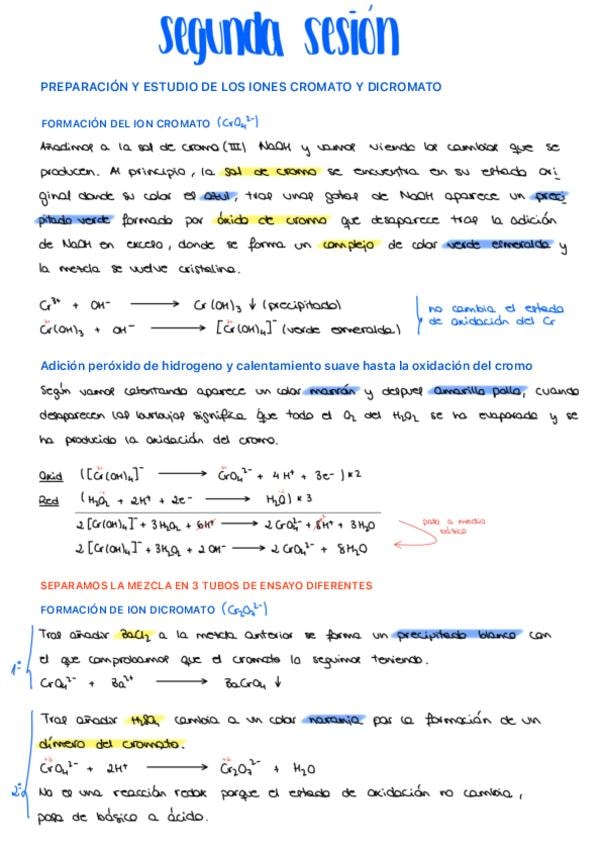 segunda sesión
PREPARACIÓN Y ESTUDIO DE LOS IONES CROMATO Y DICROMATO
FORMACIÓN DEL ION CROMATO (CrO₄²⁻)
Añadimos a la sal de cromo (III) NaOH y vamos viendo los cambios que se
producen. Al principio, la sal de cromo se encuentra en su estado ori_
ginal donde su color es azul, tras unas gotas de NaOH aparece un preci_
pitado verde formado por óxido de cromo que desaparece tras la adición
de NaOH en exceso, donde se forma un complejo de color verde esmeralda y
la mezcla se vuelve cristalina.
Cr³⁺ + OH⁻ ⟶ Cr(OH)₃ ↓ (precipitado)
Cr(OH)₃ + OH⁻ ⟶ [Cr(OH)₄]⁻ (verde esmeralda)
no cambia el estado
de oxidación del Cr
Adición peróxido de hidrogeno y calentamiento suave hasta la oxidación del cromo
Según vamos calentando aparece un color marrón y después amarillo pollo, cuando
desaparecen las burbujas significa que todo el O₂ del H₂O₂ se ha evaporado y se
ha producido la oxidación del cromo.
Oxid ([Cr(OH)₄]⁻ ⟶ CrO₄²⁻ + 4H⁺ + 3e⁻) x2
Red (H₂O₂ + 2H⁺ + 2e⁻ ⟶ H₂O) x 3
2 [Cr(OH)₄]⁻ + 3H₂O₂ + 6H⁺ ⟶ 2 CrO₄²⁻ + 8H⁺ + 3H₂O
2 [Cr(OH)₄]⁻ + 3H₂O₂ + 2OH⁻ ⟶ 2 CrO₄²⁻ + 8H₂O
paso a medio
básico
SEPARAMOS LA MEZCLA EN 3 TUBOS DE ENSAYO DIFERENTES
FORMACIÓN DE ION DICROMATO (Cr₂O₇²⁻)
1º
Tras añadir BaCl₂ a la mezcla anterior se forma un precipitado blanco con
el que comprobamos que el cromato lo seguimos teniendo.
CrO₄²⁻ + Ba²⁺ ⟶ BaCrO₄ ↓
2º
Tras añadir H₂SO₄ cambia a un color naranja por la formación de un
dímero del cromato.
CrO₄²⁻ + 2H⁺ ⟶ Cr₂O₇²⁻ + H₂O
No es una reacción redox porque el estado de oxidación no cambia,
pasa de básico a ácido.